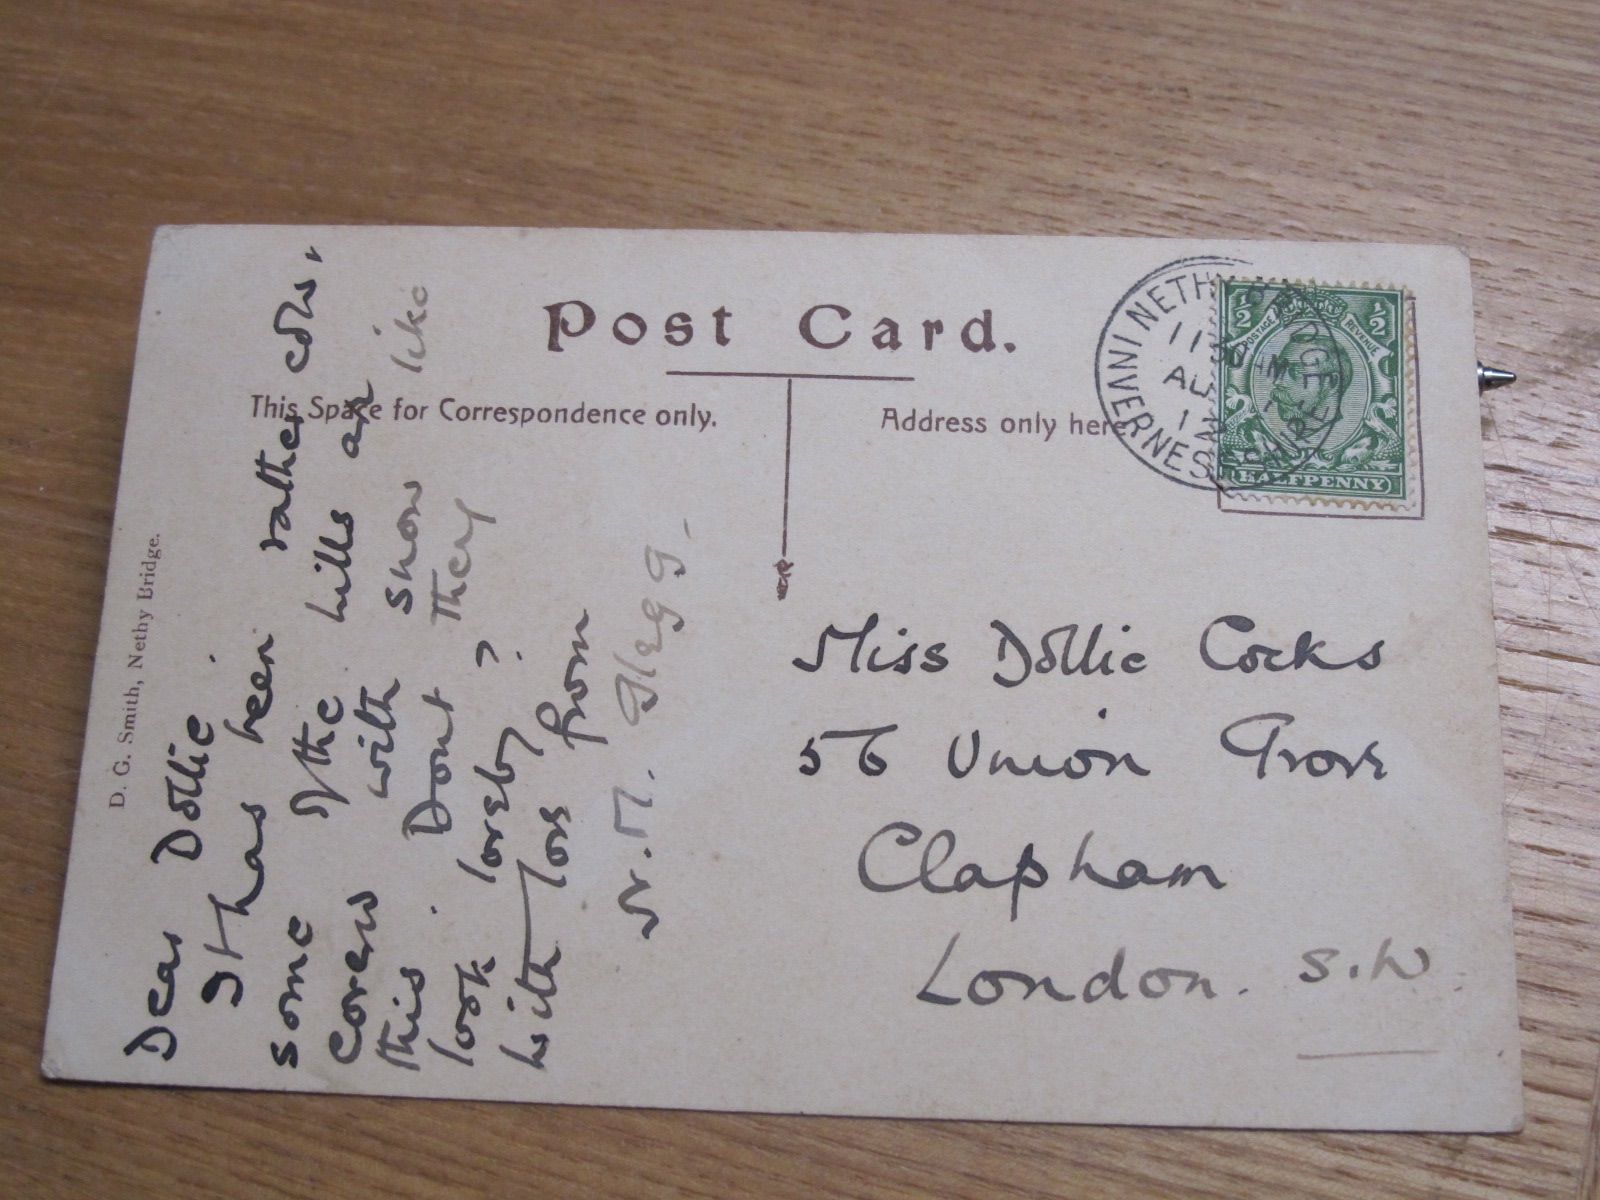 Post Card.
This Space for Correspondence only.
Address only here
D. G. Smith, Nethy Bridge.
Dear Dollie.
It has been rather cold,
some of the hills are
covered with snow like
this. Dont they
look lovely?
With love from
N. M. Flegg.
Miss Dollie Cocks
56 Union Grove
Clapham
London. S.W.
NETHY BRIDGE
INVERNESS-SHIRE
11
AU
1/2 1/2
POSTAGE REVENUE
HALFPENNY